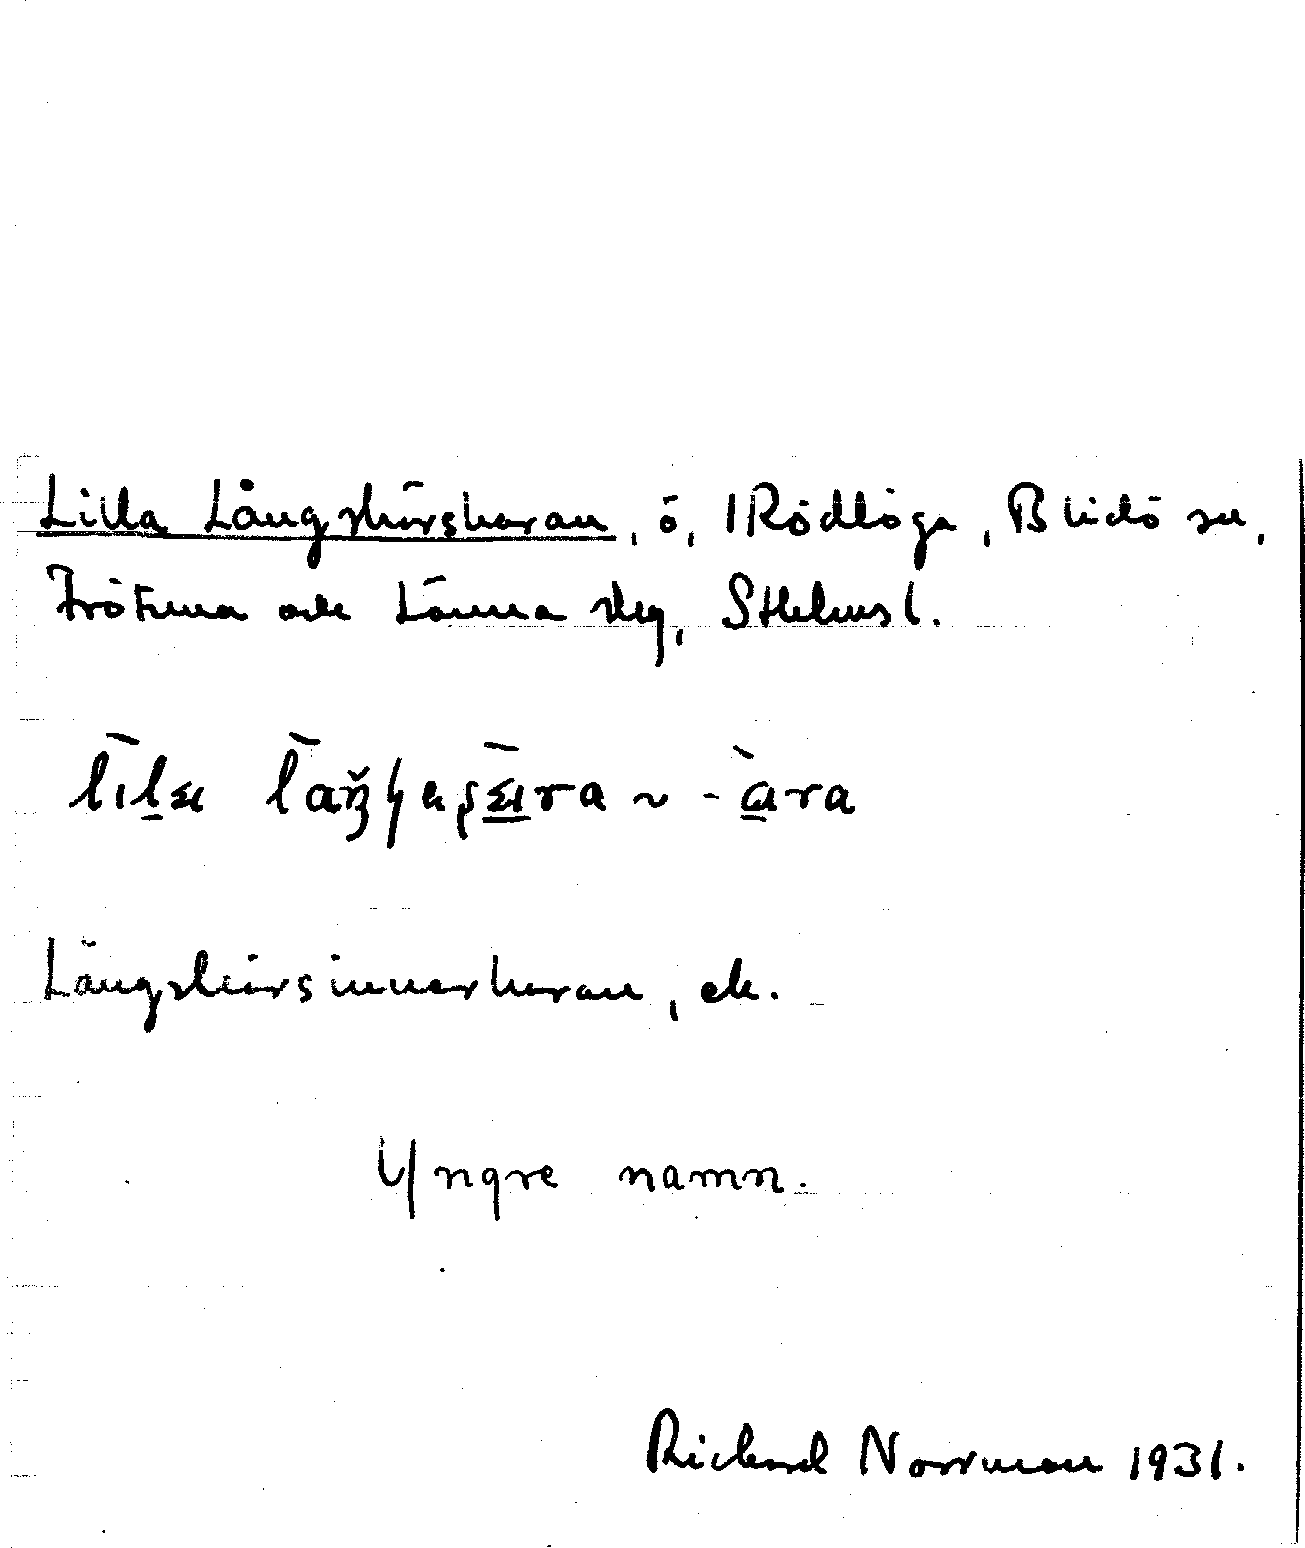 Lilla Långskärsharan, ö, Rödlöga, Blidö sn,
Frötuna och Länna skg, Sthlms l.
Långskärsinnerharan, ek.
Yngre namn.
Richard Norrman 1931.